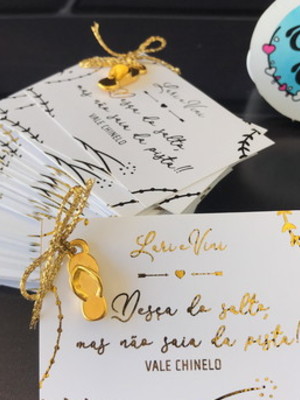 Lari e Vini
Desça do salto,
mas não saia da pista!!
VALE CHINELO
Lari e Vini
Desça do salto,
mas não saia da pista!!
VALE CHINELO